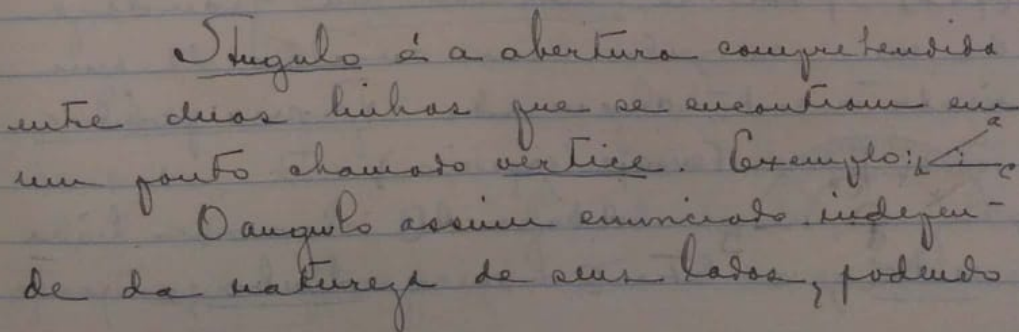 Angulo é a abertura comprehendida
entre duas linhas que se encontram em
um ponto chamado vertice. Exemplo: a b c
O angulo assim enunciado indepen-
de da natureza de seus lados, podendo